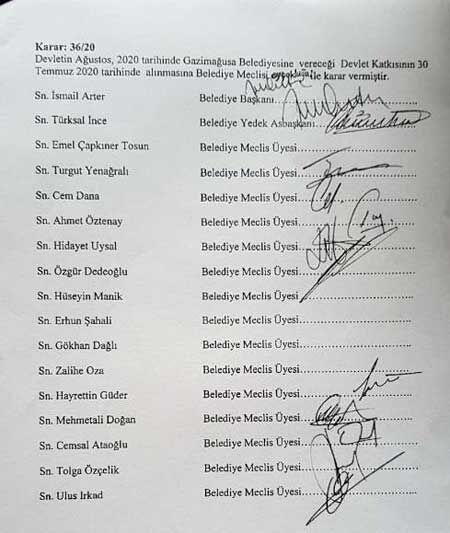 Karar: 36/20
Devletin Ağustos, 2020 tarihinde Gazimağusa Belediyesine vereceği Devlet Katkısının 30
Temmuz 2020 tarihinde alınmasına Belediye Meclisi ile karar vermiştir.
Sn. İsmail Arter Belediye Başkanı
Sn. Türksal İnce Belediye Yedek Asbaşkanı
Sn. Emel Çapkıner Tosun Belediye Meclis Üyesi
Sn. Turgut Yenağralı Belediye Meclis Üyesi
Sn. Cem Dana Belediye Meclis Üyesi
Sn. Ahmet Öztenay Belediye Meclis Üyesi
Sn. Hidayet Uysal Belediye Meclis Üyesi
Sn. Özgür Dedeoğlu Belediye Meclis Üyesi
Sn. Hüseyin Manik Belediye Meclis Üyesi
Sn. Erhun Şahali Belediye Meclis Üyesi
Sn. Gökhan Dağlı Belediye Meclis Üyesi
Sn. Zalihe Oza Belediye Meclis Üyesi
Sn. Hayrettin Güder Belediye Meclis Üyesi
Sn. Mehmetali Doğan Belediye Meclis Üyesi
Sn. Cemsal Ataoğlu Belediye Meclis Üyesi
Sn. Tolga Özçelik Belediye Meclis Üyesi
Sn. Ulus Irkad Belediye Meclis Üyesi